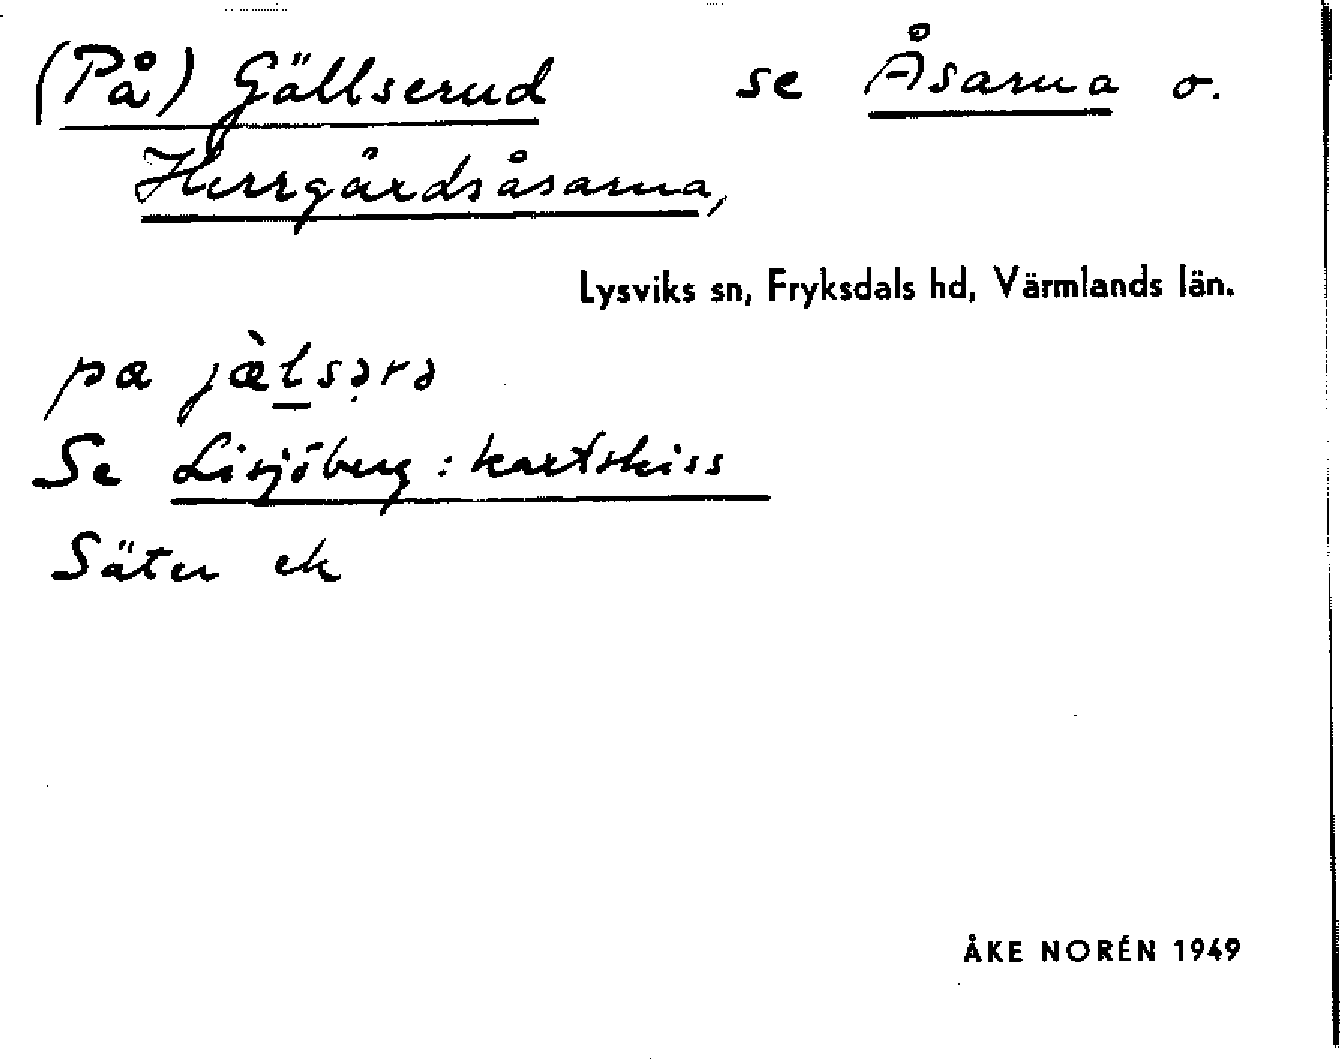 (På) Gällserud se Åsarna o.
Herrgårdsåsarna,
Lysviks sn, Fryksdals hd, Värmlands län.
pa jæ̀lsərə
Se Lisjöberg : kartskiss
Säter ek
ÅKE NORÉN 1949